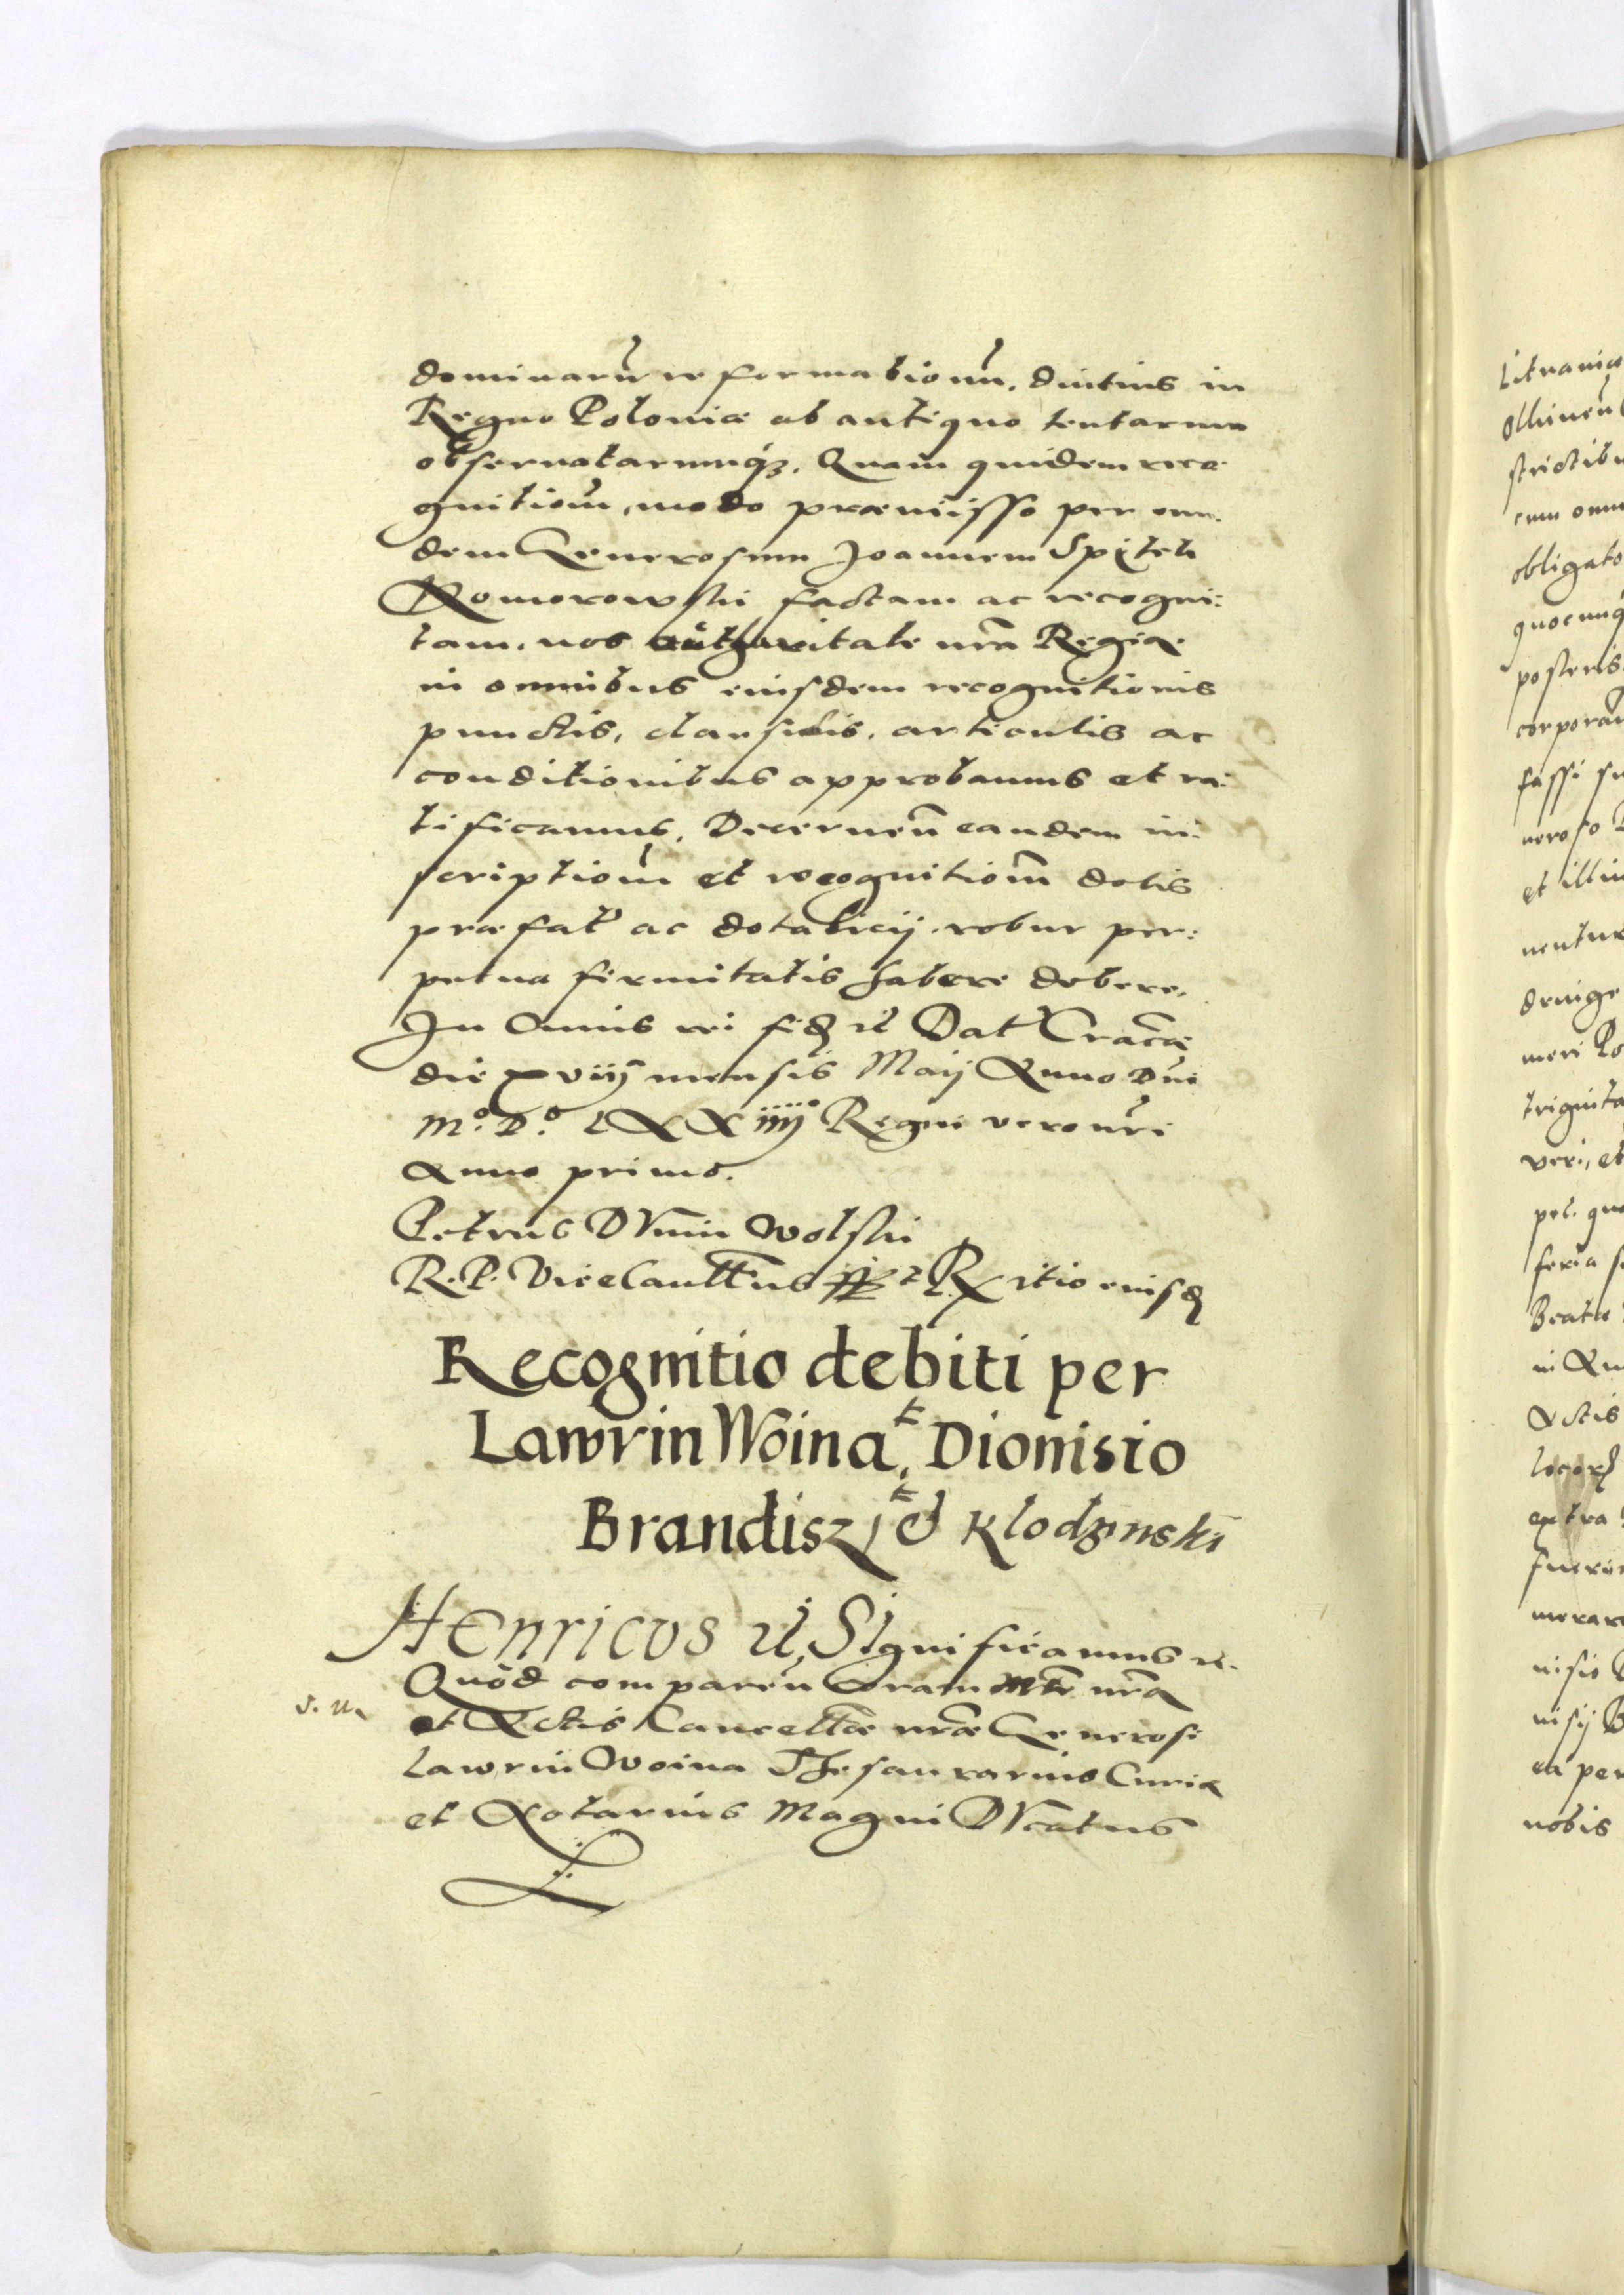 dominarũ reformationũ, diutius in
Regno Poloniæ ab antiquo tentarum
obseruatarumq₃. Quam quidem reco
gnitionẽ, modo præmisso per eun
dem Generosum Joannem Spitek
Komorowski factam ac recogni:
tam, nos authoritate nrã Regia
in omnibus eiusdem recognitionis
punctis, clausulis, articulis ac
conditionibus approbamus et ra:
tificamus. Decernen̄ eandem in
scriptionẽ et recognitionẽ dotis
præfat ac dotalicij robur per:
petuæ firmitatis habere debere.
In Cuius rei fidẽ etc Dat Cracõæ
die xviij mensis Maij Anno Dni
M.º D.º LXXiiijº Regni vero nrĩ
Anno primo.
Petrus Dunin Wolski
R. P. Vicecancellarius eiusd
Recognitio debiti per
Lawrin Woina, Dionisio
Brandisz, et Klodzinski
Henricus etc, Significamus etc.
Quòd comparen̄ Coram Mte nrã
et Actis Cancellæ nræ Generosi
Lawrin Woina Thesaurarius Curiæ
et Notarius Magni Ducatus
L
Lituaniæ
strictib
cum omni
obligato
quocunq
posteris
corporan
fassi su
neroso
et illiu
uentur
denige
meri Po
triginta
veri, et
pol. quo
feria s
Beatæ
in Qu
Actis
locor
extra
fuerin
merare
nisio
nisij B
ea per
nobis